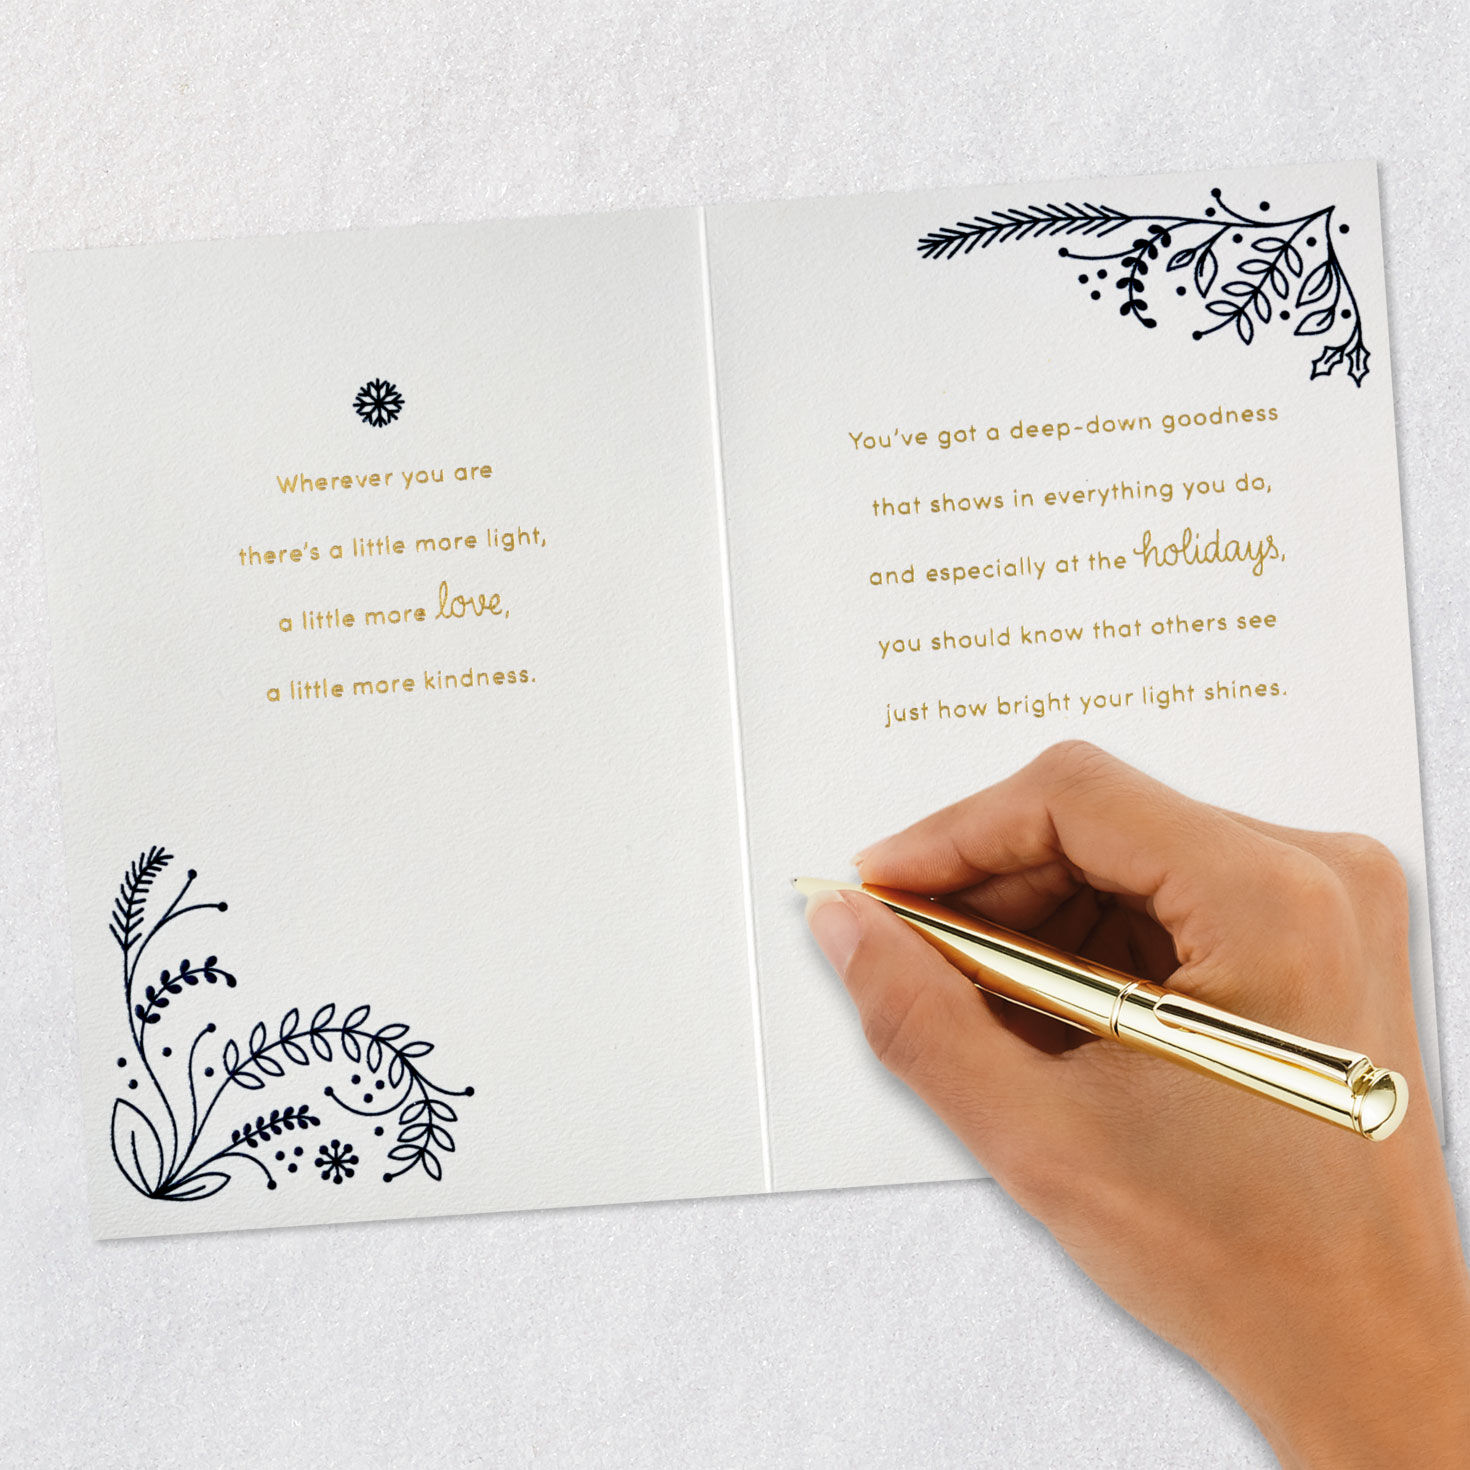 Wherever you are
there's a little more light,
a little more love,
a little more kindness.
You've got a deep-down goodness
that shows in everything you do,
and especially at the holidays,
you should know that others see
just how bright your light shines.